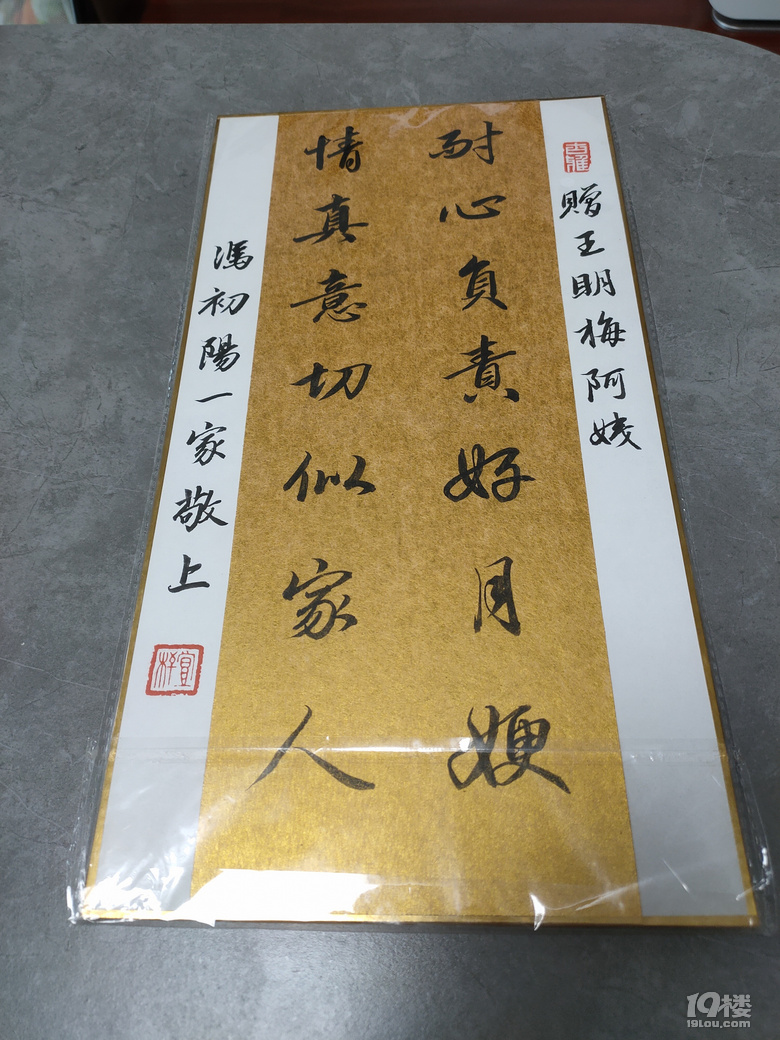 贈王明梅阿姨
耐心負責好月嫂
情真意切似家人
馮初陽一家敬上
19楼
19lou.com